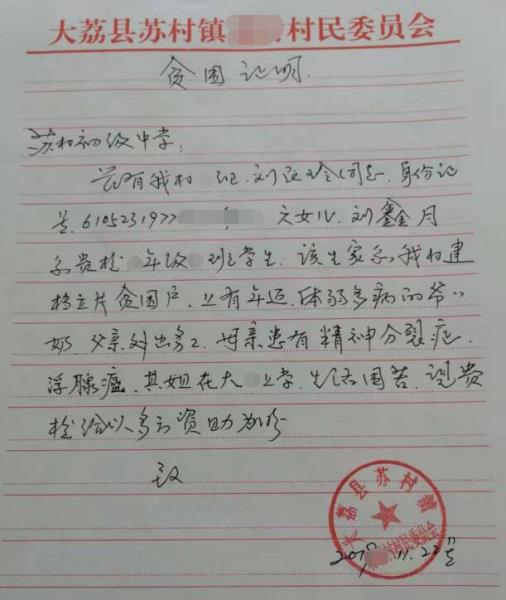 大荔县苏村镇 村民委员会
贫困证明
苏村初级中学:
兹有我村 组 刘 同志,身份证
号:6105231977 女儿 刘鑫月
系贵校 年级 班学生,该生家系我村建
档立卡贫困户,上有年迈、体弱多病的爷
奶,父亲外出务工,母亲患有精神分裂症、
腺瘤,其姐在大 上学,生活困苦,望贵
校给以多方资助为盼
致
大荔县苏村镇 村民委员会
201 .11.22日